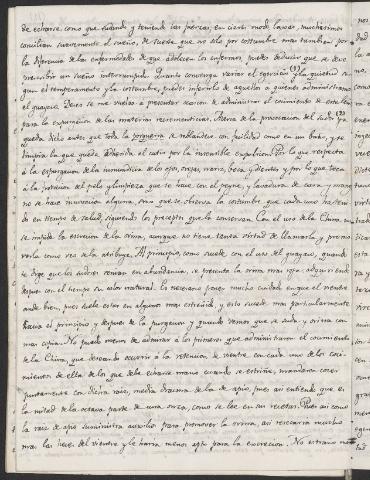 de echarse, como que sudando y teniendo las fuerzas, en cierto modo lassas, muchisimos
concilian suavemente el sueño, de suerte que no solo por costumbre mas tambien por
la diferencia de las enfermedades de que adolecen los enfermos, puede deducirse que se deve
prescribir un sueño interrumpido. Quanto convenga variar el exercicio y la quietud se-
gun el temperamento y la costumbre, puedes inferirlo de aquellos a quienes administramos
el guayaco. Pero se me vuelve a presentar ocasion de administrar el cocimiento de esta
para la expurgacion de las materias recrementicias. Acerca de la provocacion del sudor
queda dicho antes que toda la porqueria se reblandece con facilidad como en un baño, y se
limpia la que queda adherida al cutis por la insensible expulsion. Por lo que respecta
a la expurgacion de la inmundicia de los ojos, orejas, nariz, boca, y dientes, y por lo que toca
a la polucion del pelo y limpieza que se hace con el peyne, y lavadura de cara y manos
no se hace mutacion alguna, sino que se observa la costumbre que cada uno ha teni-
do en tiempo de salud, siguiendo los preceptos que la conservan. Con el uso de la China, no
se impide la excrecion de la orina, aunque no tiene tanta virtud de llamarla, y promo-
verla como se la atribuye. Al principio, como suele con el uso del guayaco, quando
te dige que los sudores venian en abundancia, se presenta la orina mas roja: adquiriendo
despues con el tiempo su color natural. Es necesario poner mucho cuidado en que el vientre
ande bien, pues suele estar en algunos mas estreñido, y esto sucede mas particularmente
hacia el principio y despues de la purgacion y quando vemos que se suda y orina con
mas copia. No puedo menos de admirar a los primeros que administraron el cocimiento
de la China, que deseando ocurrir a la retencion de vientre con cada uno de los coci-
mientos de ella de los que debe echarse mano quando se estriñe, mandaron cocer
juntamente con dicha raiz, media dracma de la de apio, pues asi entiendo que es
la mitad de la octava parte de una onza, como se lee en su receta. Pues asi como
la raiz de apio suministra auxilios para promover la orina, asi resecaria mucho
mas las heces del vientre y le haria menos apto para la excrecion. No estraño